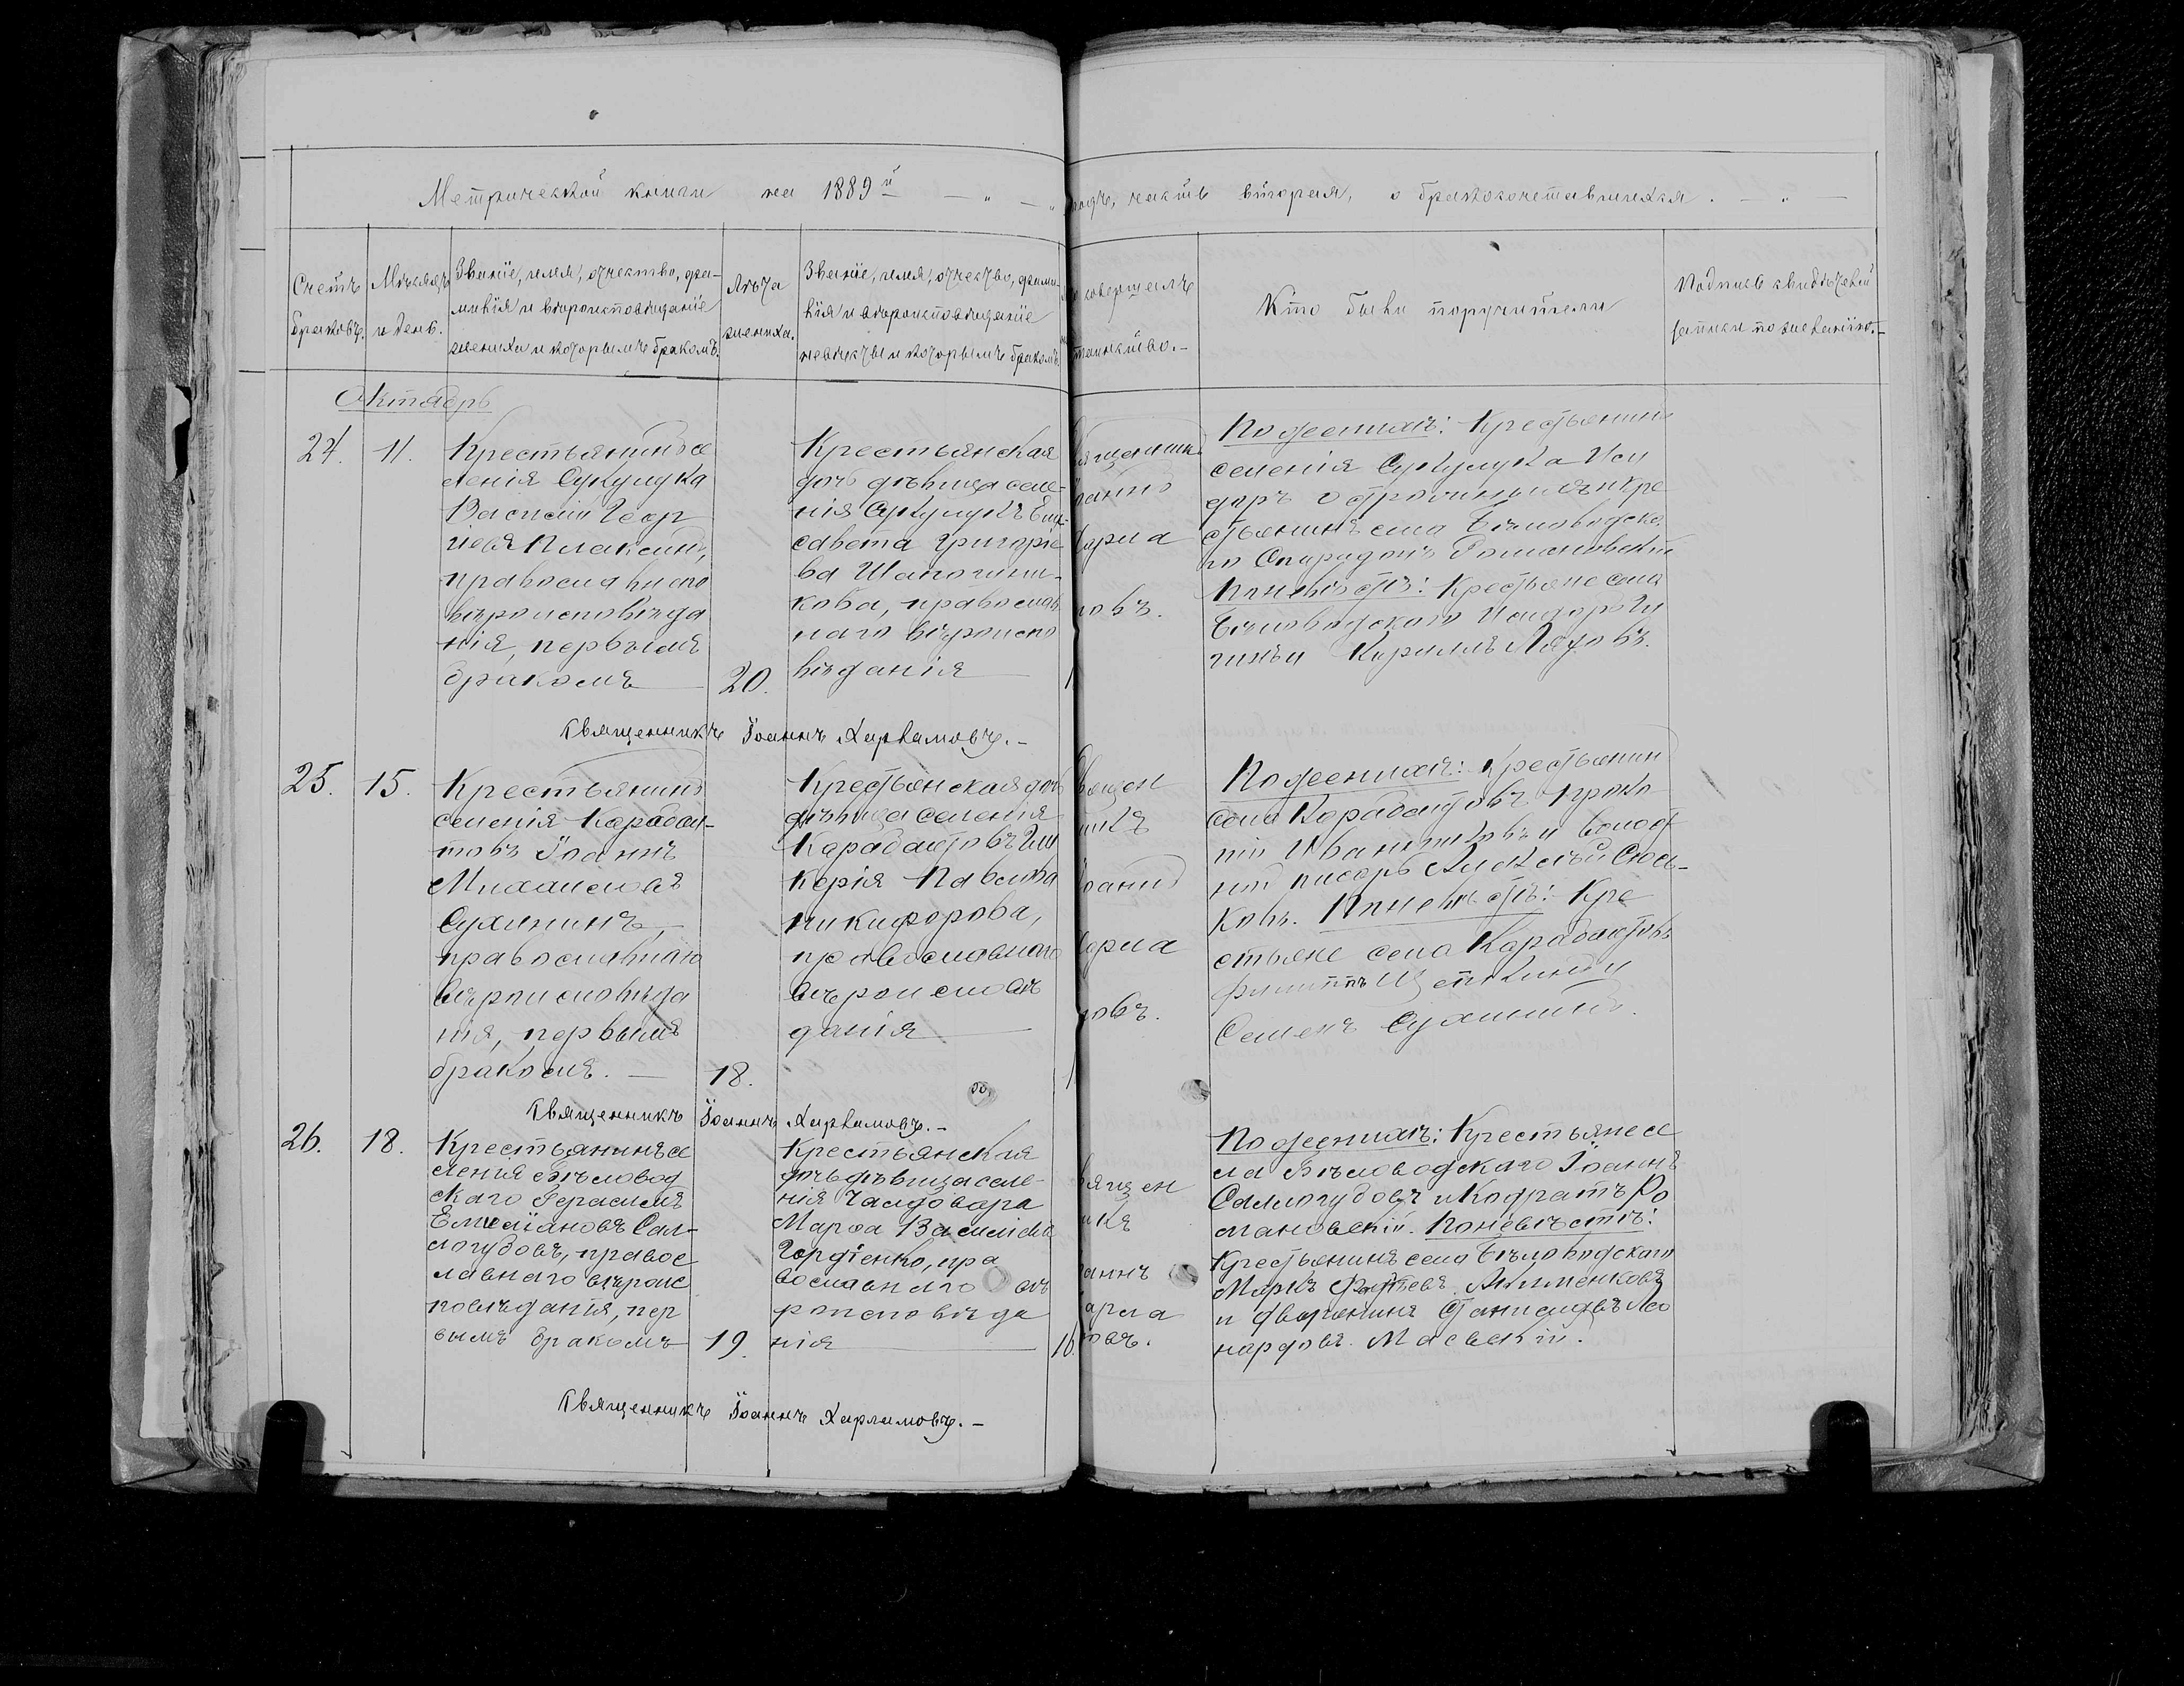 Метрической книги на 1889й — „ — „ годъ, часть вторая, о бракосочетавшихся. — „ —
Счетъ браковъ.
Мѣсяцъ и день.
Званіе, имя, отчество, фа-
милія и вѣроисповѣданіе
жениха и которымъ бракомъ.
Лѣта
жениха.
Званіе, имя, отчество, фами-
лія и вѣроисповѣданіе
невѣсты и которымъ бракомъ.
совершалъ
таинство.-
Кто были поручители
Подпись свидѣтелей
записи по желанію.-
Октябрь
24. 11.
Крестьянинъ се
ленія Сукулука
Василій Геор
гіевъ Плаксинъ,
православнаго
вѣроисповѣда
нія, первымъ
бракомъ — 20.
Крестьянская
дочь дѣвица селе-
нія Сукулукъ Ели-
савета Григорье
ва Шапошни-
кова, православ
наго вѣроиспо
вѣданія —
вященникъ
оаннъ
Харла
мовъ.
По женихѣ: Крестьянинъ
селенія Сукулука Иси
доръ и кре
стьянинъ села Бѣловодска
го Спиридонъ Романовскій
По невѣстѣ: Крестьяне села
Бѣловодскаго Исидоръ
и Кириллъ Лядовъ.
Священникъ Іоаннъ Харламовъ.-
25. 15.
Крестьянинъ
селенія Карабал-
товъ Іоаннъ
Михаиловъ
Сухининъ,
православнаго
вѣроисповѣда
нія, первымъ
бракомъ. — 18.
Крестьянская дочь
дѣвица селенія
Карабалтовъ Гли
керія Павлова
Никифорова,
православнаго
вѣроисповѣ
данія —
вящен
никъ
Іоаннъ
Харла
мовъ.
По женихѣ: Крестьянин
села Карабалтовъ Проко
пій Иванниковъ и волост
ной писарь Алексѣй Сюсь-
ковъ. По невѣстѣ: Кре
стьяне села Карабалтовъ
Филиппъ Щепкинъ и
Семенъ Сухининъ.
Священникъ Іоаннъ Харламовъ.-
26. 18.
Крестьянинъ се
ленія Бѣловод
скаго Герасимъ
Емиліановъ Сал-
логубовъ, правос
лавнаго вѣроис
повѣданія, пер
вымъ бракомъ — 19.
Крестьянская
дочь дѣвица селе-
нія Чалдовара
Марѳа Василіева
Гордіенко, пра
вославнаго вѣ
роисповѣда
нія — 16.
вящен
икъ
оаннъ
Харла
мовъ.
По женихѣ: Крестьяне се
ла Бѣловодскаго Іоаннъ
Саллогубовъ и Кодратъ Ро
мановскій. По невѣстѣ:
Крестьянинъ села Бѣловодскаго
Маркъ Акименковъ
и дворянинъ Станиславъ Лео
нардовъ Маевскій.
Священникъ Іоаннъ Харламовъ.-